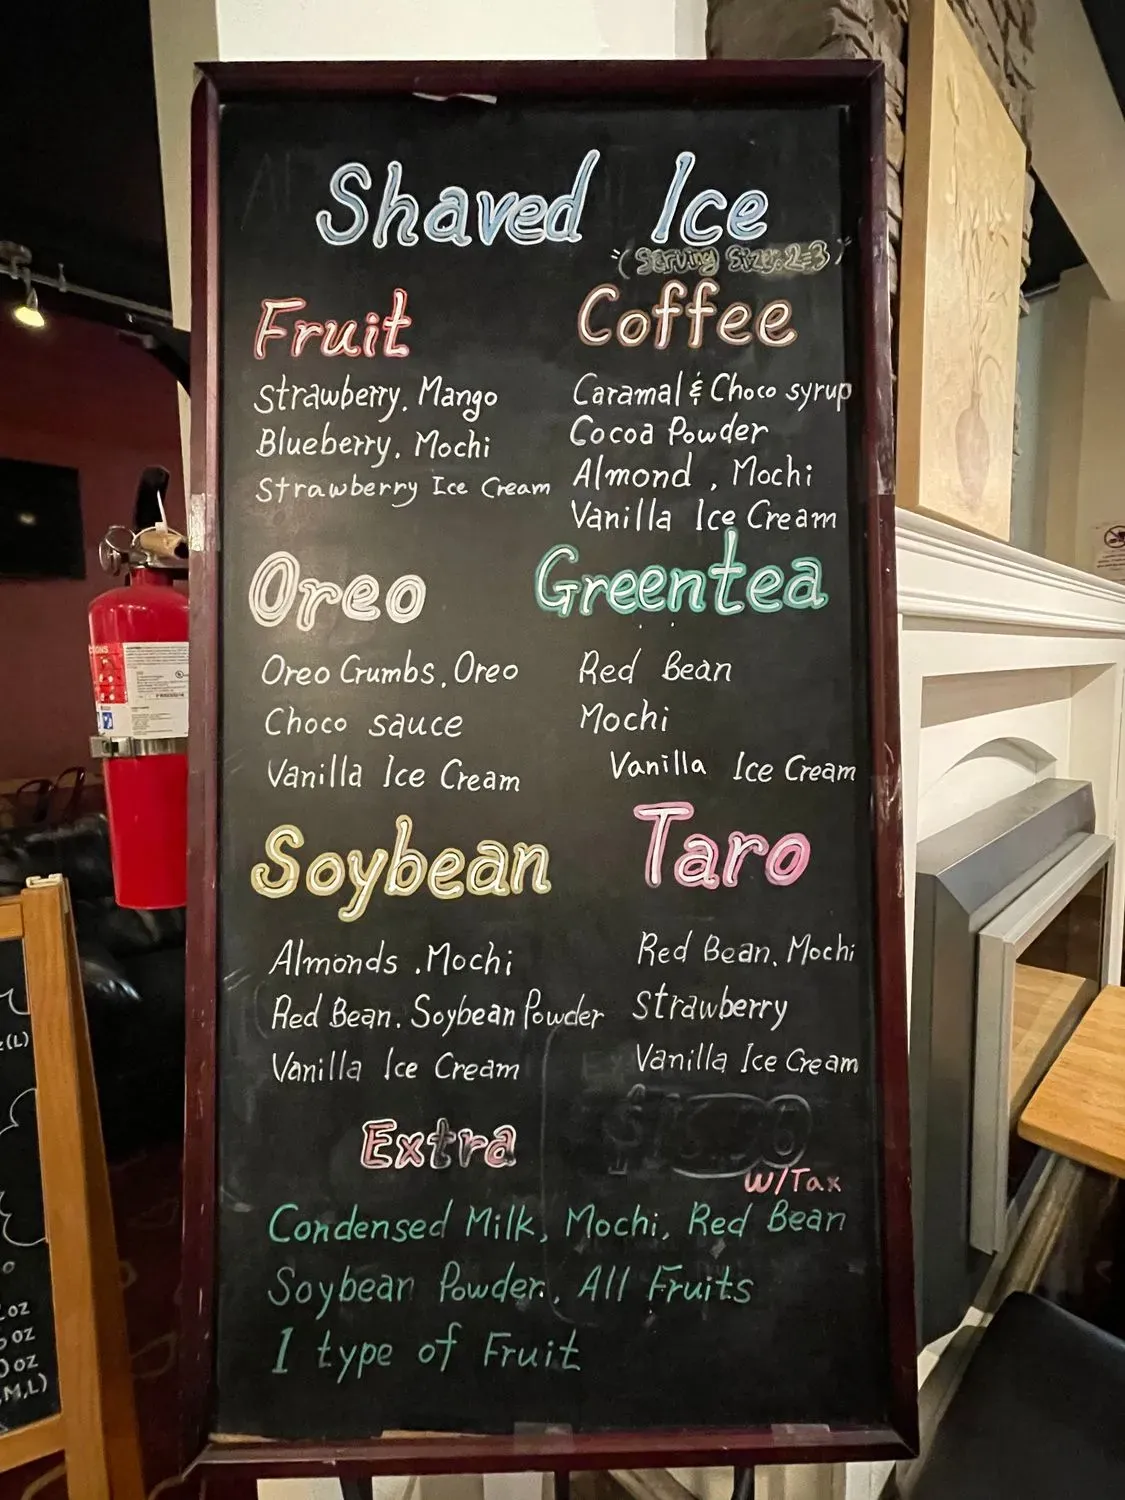 Shaved Ice
"(Serving Size: 2-3)"
Fruit
Strawberry, Mango
Blueberry, Mochi
Strawberry Ice Cream
Coffee
Caramal & Choco syrup
Cocoa Powder
Almond, Mochi
Vanilla Ice Cream
Oreo
Oreo Crumbs, Oreo
Choco sauce
Vanilla Ice Cream
Greentea
Red Bean
Mochi
Vanilla Ice Cream
Soybean
Almonds, Mochi
Red Bean, Soybean Powder
Vanilla Ice Cream
Taro
Red Bean, Mochi
Strawberry
Vanilla Ice Cream
Extra
W/Tax
Condensed Milk, Mochi, Red Bean
Soybean Powder, All Fruits
1 type of Fruit
(L)
oz
oz
oz
M,L)